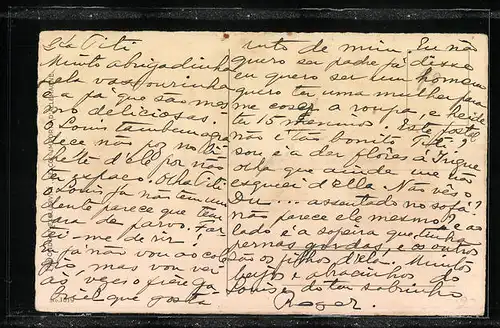 Lda Titi
Muito abrigadinha
pela vassourinha
e a já que são mes
mo deliciosas.
O Louis tambem agra
dece nos poz no bi
lhete d'ele por não
ter espaço. Olha Titi
O Louis já não tem um
dente parece que tem
cara de parvo. Far
tei me de rir!
já não vou ao col
mas vou vêr
ás vezes o
que gosta
muto de mim. Eu não
quero ser padre já disse
eu quero ser um homem
quero ter uma mulher para
me coser a roupa, e heide
ter 15 meninos. Este postal
não é tão bonito Titi?
sou é a dar flores á
olha que ainda me não
esqueci d'ella. Não vês o
Du... assentado no sofá
não parece ele mesmo? e ao
lado é a sopeira que tinha
pernas gordas, e os outros
são os filhos d'ela. Muitos
beijos e abracinhos do
Louis e do teu sobrinho
Roger.